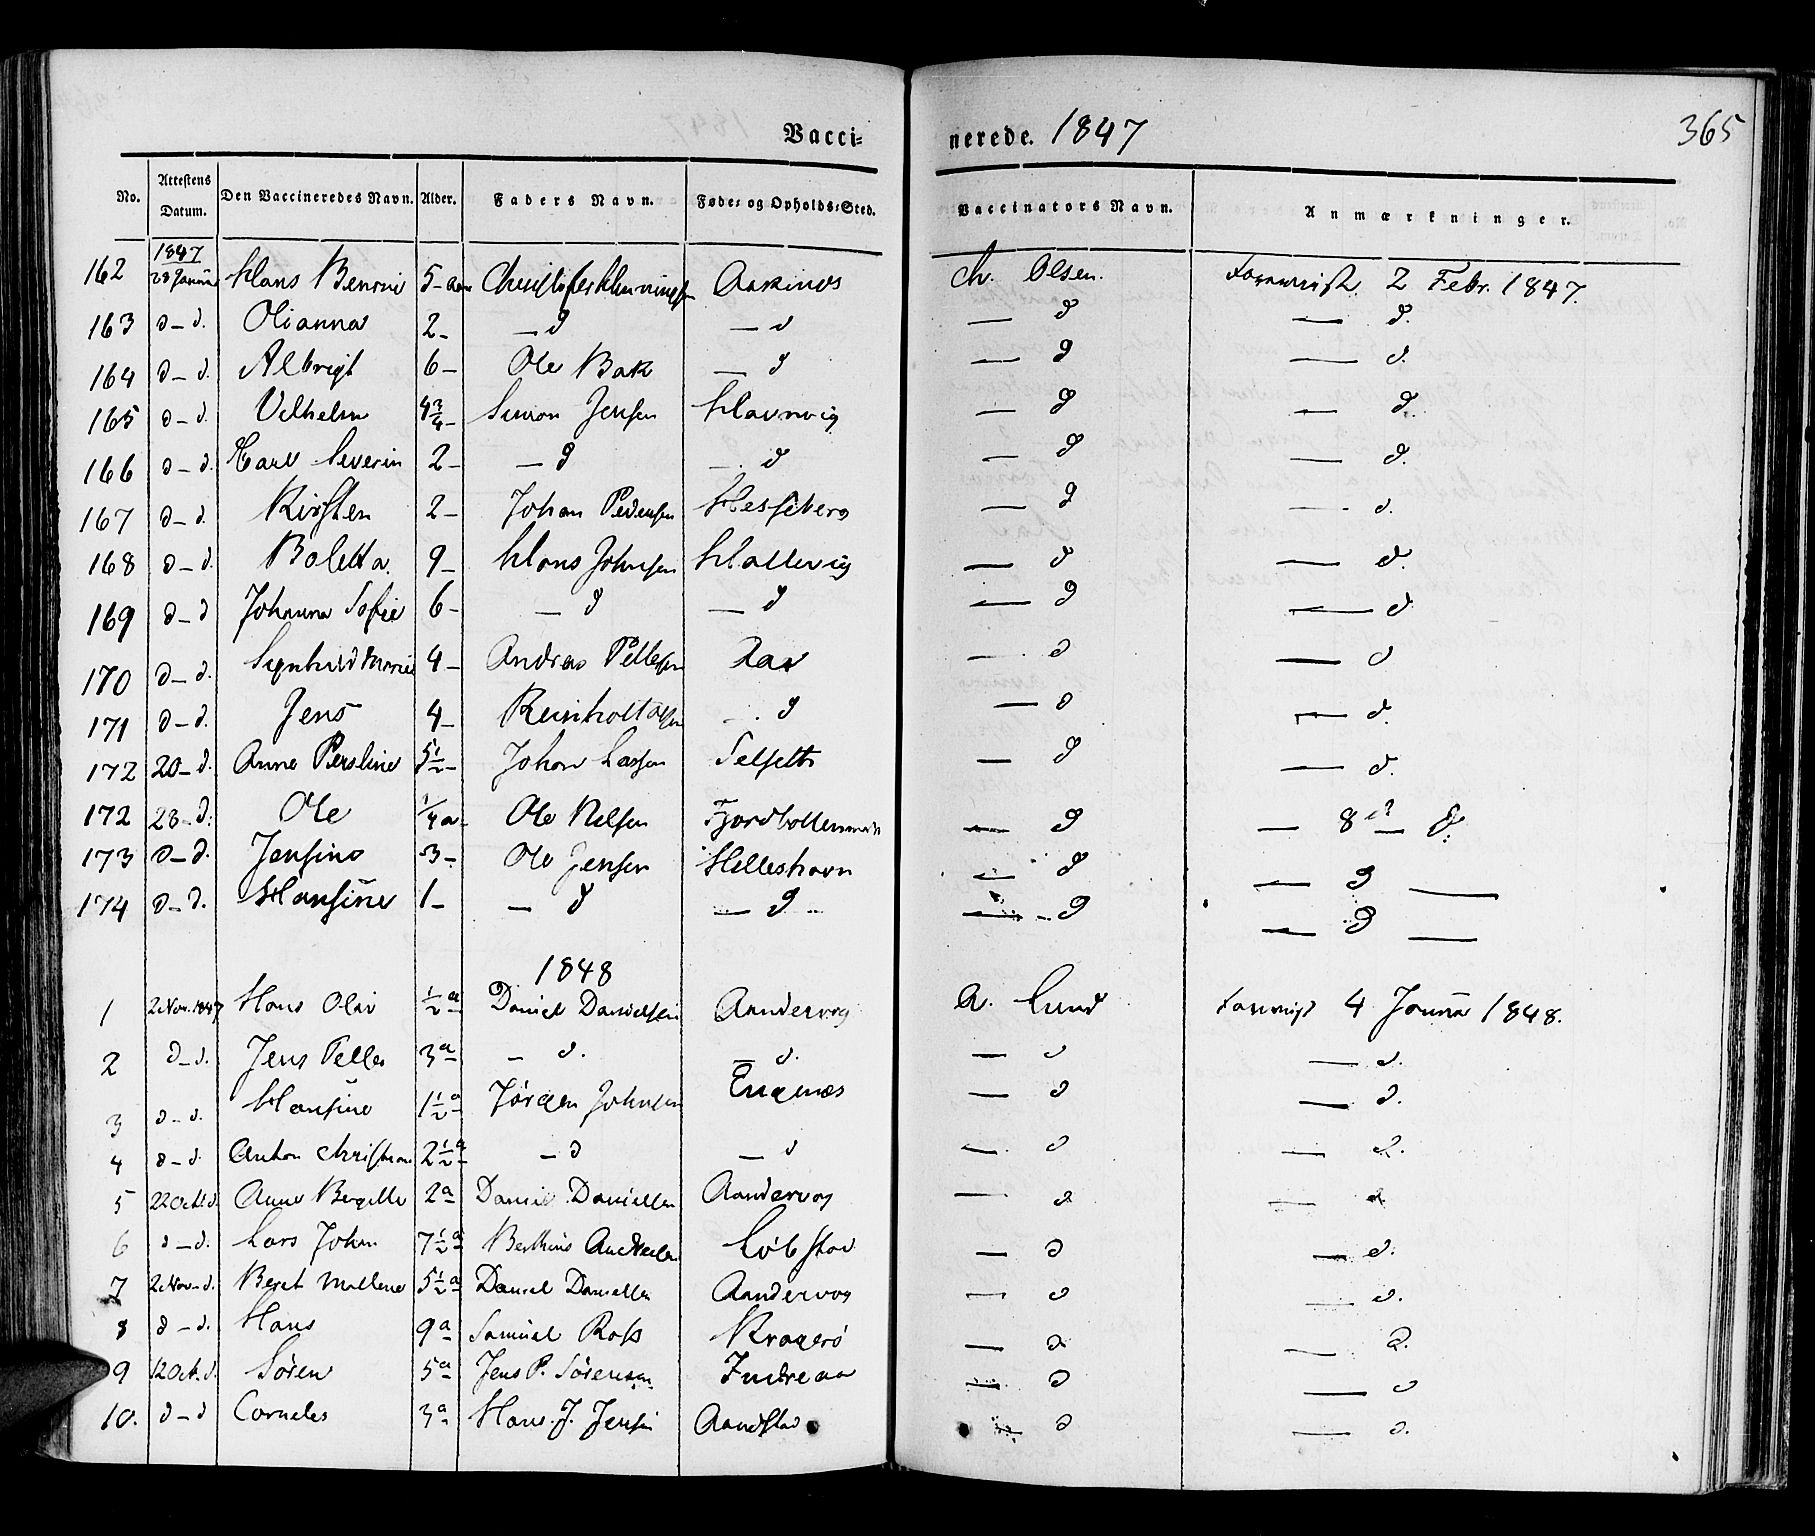 Vacci= nerede. 1847 365
No. Attestens Datum. Den Vaccineredes Navn. Alder. Faders Navn. Føde= og Opholds=Sted. Vaccinators Navn. Anmærkninger.
1847
162 28 Januar Hans 5 - Aakinæs Ch. Olsen. 2 Febr. 1847.
163 d - d. Olianna 2 - — d — d — d — d.
164 d - d. Albrigt 6 - Ole Bak — d — d — d.
165 d - d. Vilhelm 4 3/4 - Simon Jensen Havnvig — d — d.
166 d - d. Carl Severin 2 - — d — d — d — d.
167 d - d. Kirsten 2 - Johan Pedersen Hesseberg — d — d.
168 d - d. Boletta. 9 - Hans Johnsen Hallevig — d — d.
169 d - d Johanna Sofie 6 - — d — d — d — d.
170 d - d. Signhild Marie 4 - Andreas Pettersen Aas — d — d
171 d - d. Jens 4 - Reinholt Olsen — d — d — d.
172 20 - d. Anne Persline 5 1/2 - Johan Lassen Selseth — d — d.
172 28 - d. Ole 1/4 a - Ole Nelsen — d — 8 d — d.
173 d - d. Jensine 3 - Ole Jensen Helleshavn — d — d —
174 d - d. Hansine 1 - — d — d — d — d —
1848
1 2 Nov. 1847 Hans Olai 1/2 a Daniel Danielsen Aandervog A. Lund 4 Januar 1848.
2 d - d. Jens Petter 3 a — d. — d. — d — d.
3 d - d. Hansine 1 1/2 a Jørgen Johnsen Engenes — d — d.
4 d - d. Anton Christian 2 1/2 a — d — d — d — d.
5 22 Oct. d. Anne Bergitte 2 a Daniel Danielsen Aandervog — d — d
6 d - d. Lars John 7 1/2 a Berthius Andersen Løbstad — d — d.
7 2 Nov - d. Beret Mallene 5 1/2 a Daniel Danielsen Aandervog — d — d.
8 d - d. Hans 9 a Samuel Ross Kragerø — d — d.
9 12 Oct. d. Søren 5 a Jens P. Sørensen Indreaa — d — d
10. d - d Cornelis 3 a Hans J. Jensen Aandstad — d — d.